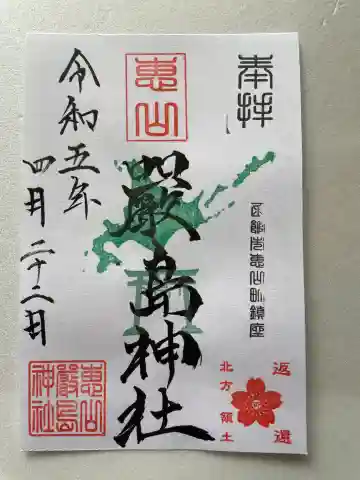 奉拝
函館市恵山町鎮座
返還
北方領土
恵山
嚴島神社
令和五年
四月二十二日
恵山
嚴島
神社